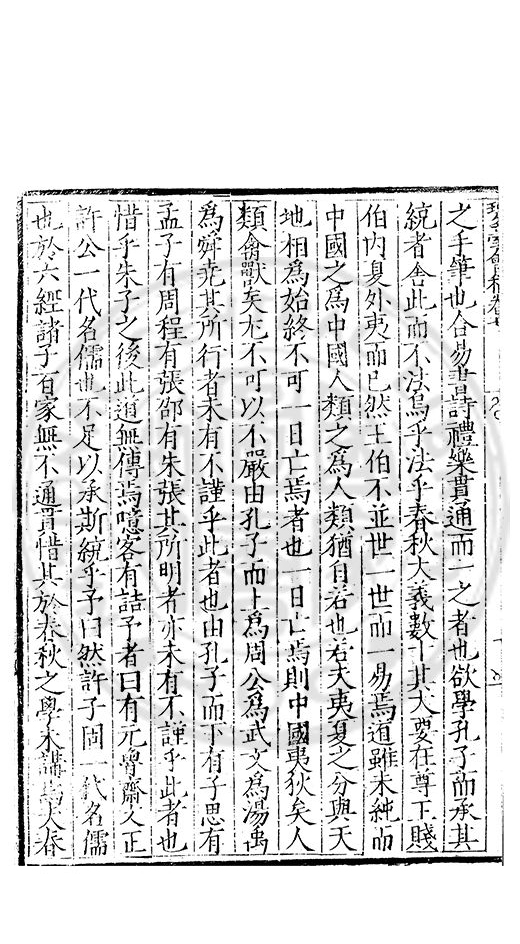 之手筆也合易書詩禮樂貫通而一之者也欲學孔子而承其
統者舍此而不法烏乎法乎春秋大義數十其大要在尊王賤
伯內夏外夷而已然王伯不並世一世而一易焉道雖未純而
中國之為中國人類之為人類猶自若也若夫夷夏之分與天
地相為始終不可一日亡焉者也一日亡焉則中國夷狄矣人
類禽獸矣尤不可以不嚴由孔子而上為周公為武文為湯禹
為舜堯其所行者未有不謹乎此者也由孔子而下有子思有
孟子有周程有張邵有朱張其所明者亦未有不謹乎此者也
惜乎朱子之後此道無傳焉噫客有詰予者曰有元魯齋久正
許公一代名儒也不足以承斯統乎予曰然許子固一代名儒
也於六經諸子百家無不通貫惜其於春秋之學未講焉夫春